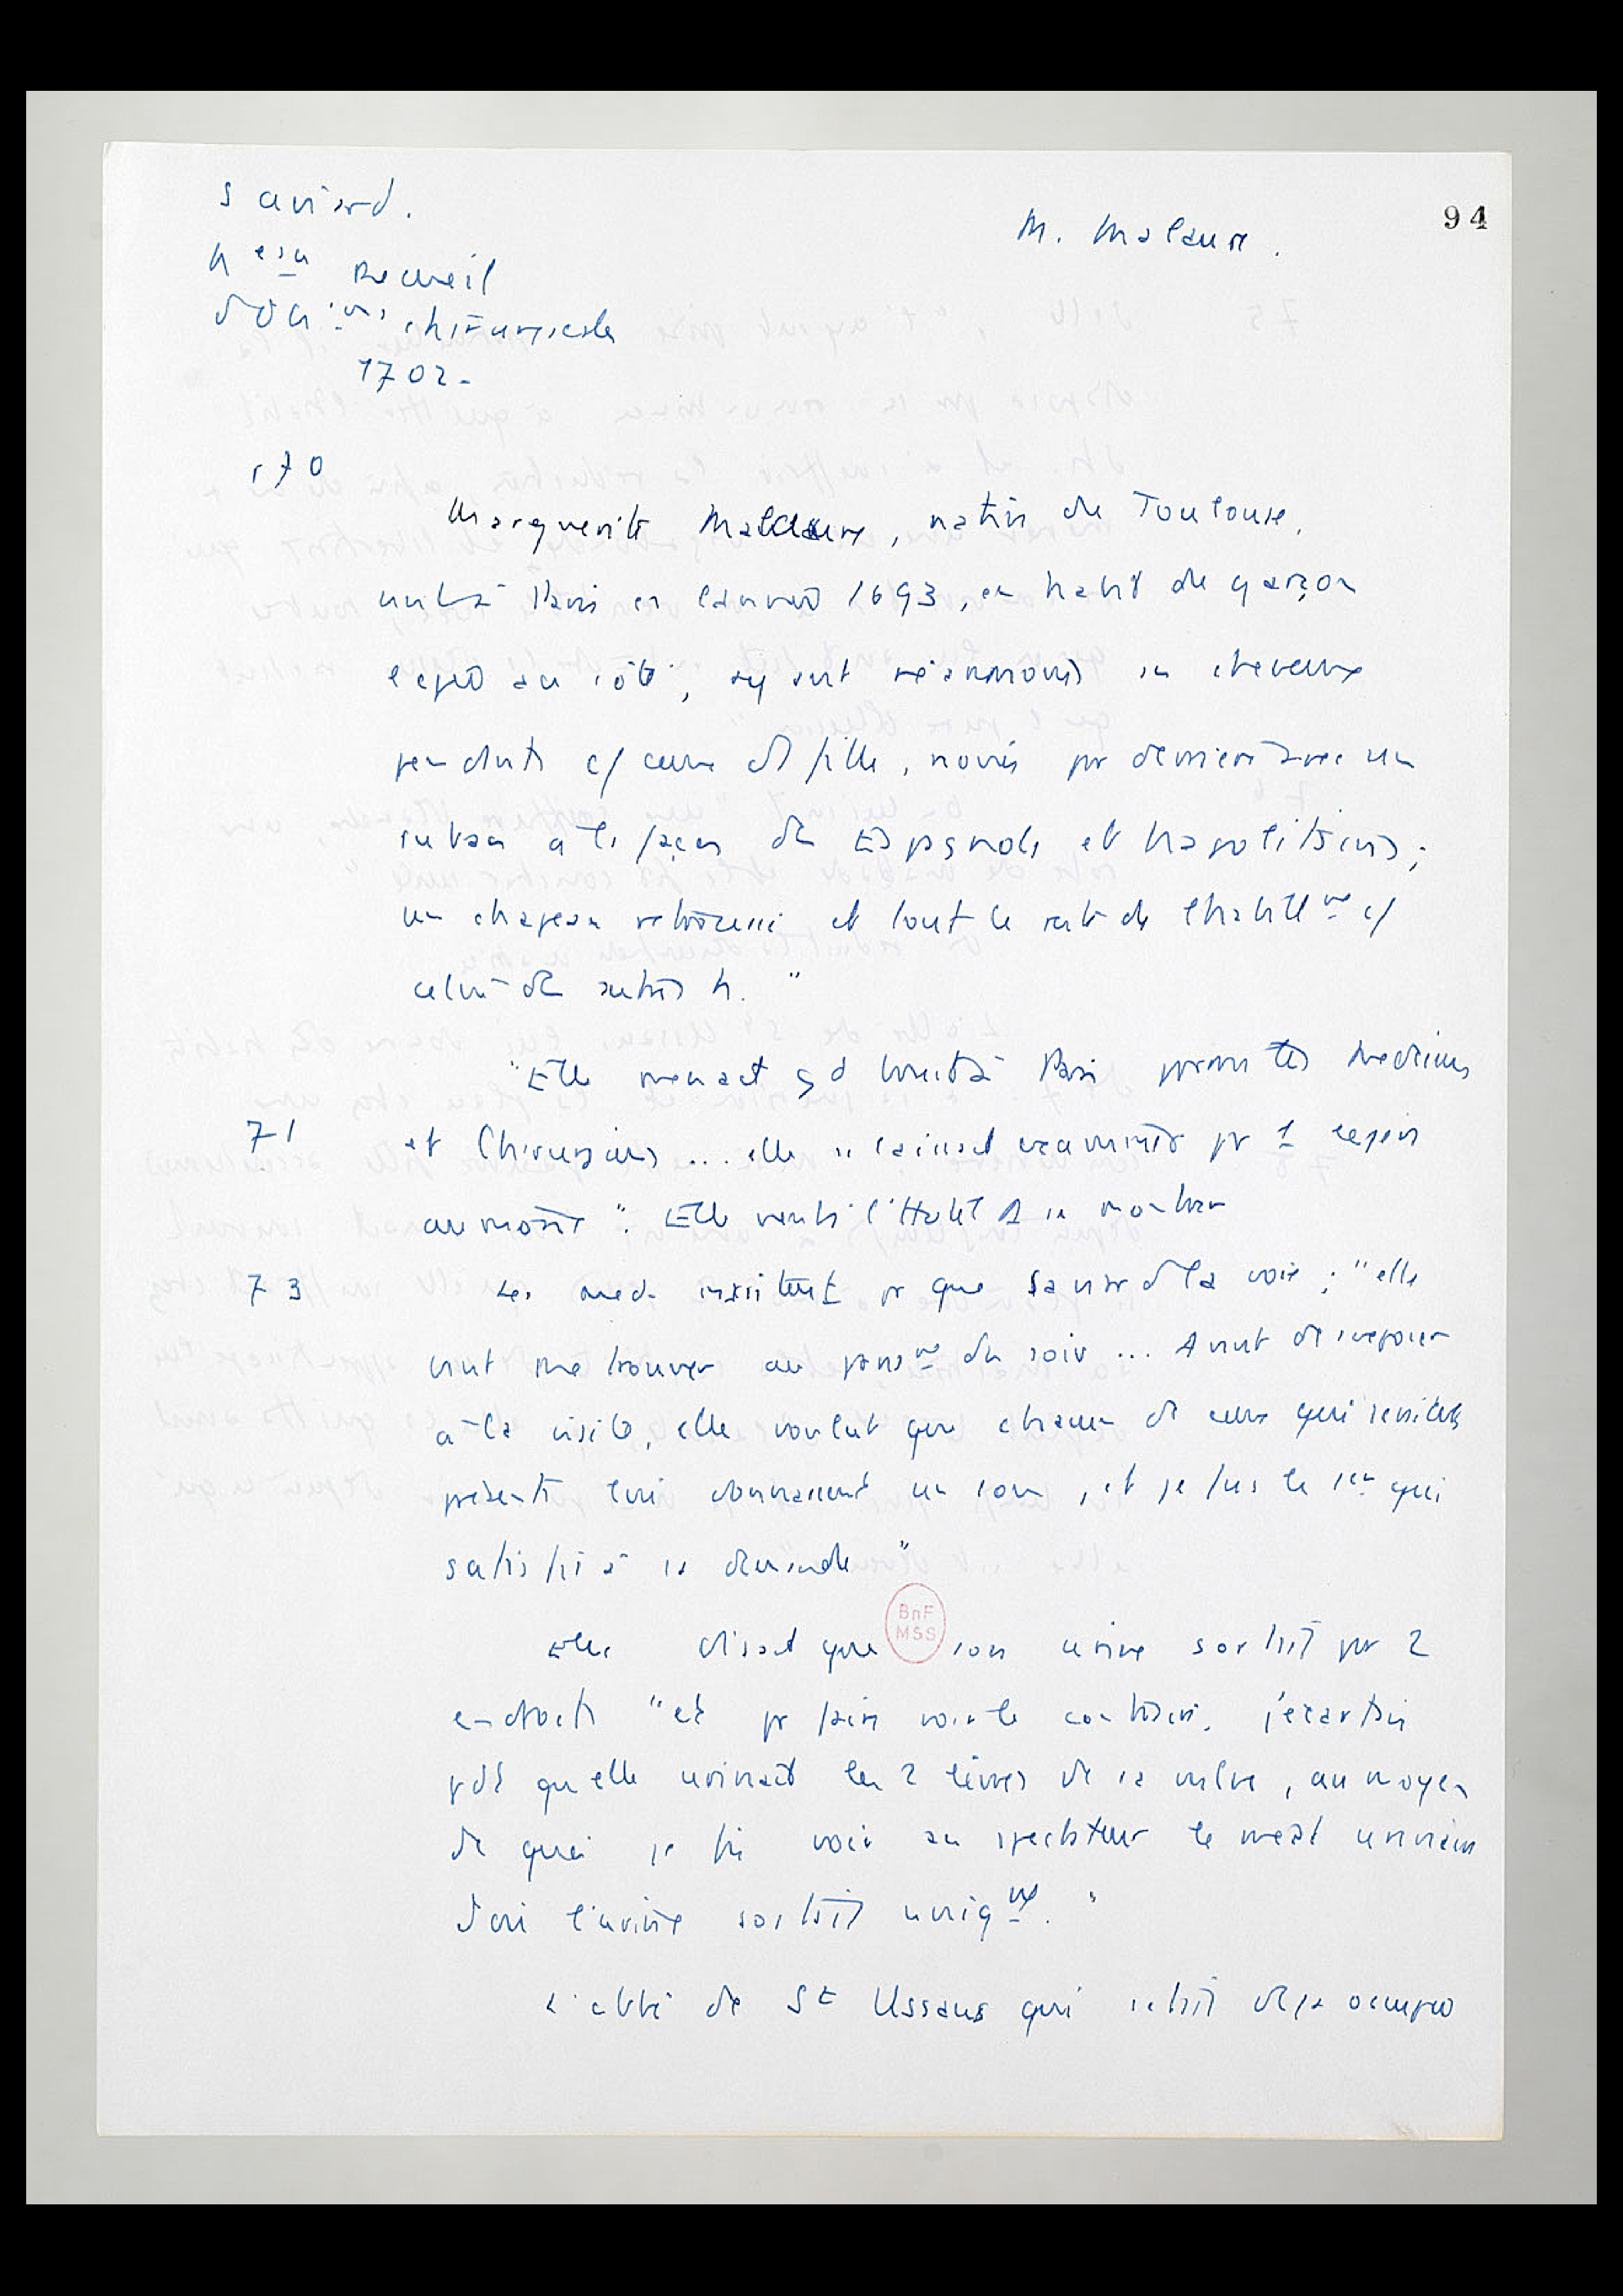 Saviard.
M. Malaure.
94
Nveau Recueil
d'Obons chirurgicales
1702.
170
Marguerite Malaure, native de Toulouse,
vint à Paris en l'année 1693, en habit de garçon
l'épée au côté, ayant néanmoins ses cheveux
pendants c/ ceux d'1 fille, noués par derrière avec un
ruban à la façon des Espagnols et Napolitains ;
un chapeau retroussé et tout le reste de l'habillmt c/
celui des autres h. "
"Elle menait gd bruit à Paris parmi les Médecins
71
et Chirurgiens ... elle se laissait examiner pr 1 légère
aumône". Elle vint à l'Hôtel D se montrer
73
Les med. insistent pr que Saviard la voie ; "elle
vint me trouver au pansmt du soir ... Avant de s'exposer
à la visite, elle voulut que chacun de ceux qui seraient
présents lui donnassent un sou, et je fus le 1er qui
satisfit à sa demande"
BnF
MSS
Elle disait que son urine sortait par 2
endroits "et pr faire voir le contraire, j'écartais
pdt qu'elle urinait les 2 lèvres de la vulve, au moyen
de quoi je fis voir au spectateur le méat urinaire
d'où l'urine sortait uniqmt."
L'abbé de St Ussans qui s'était déjà occupé